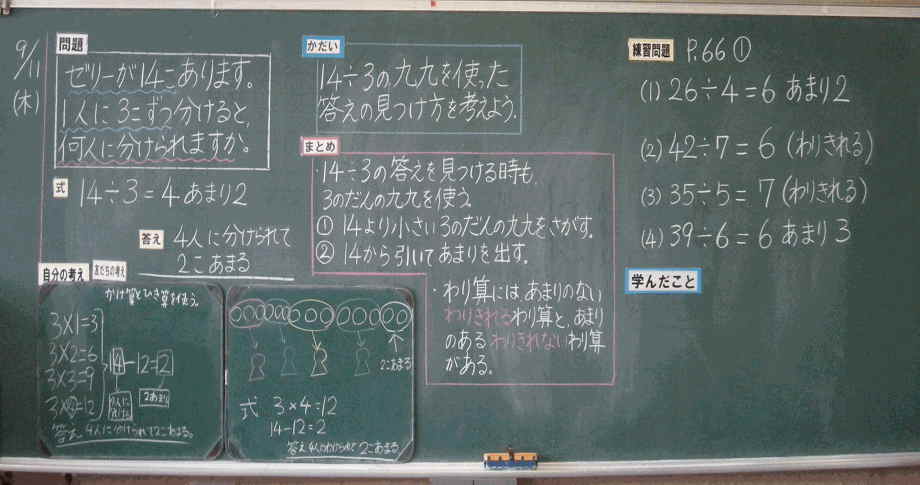 9/11
(木)
問題
ゼリーが14こあります。
1人に3こずつ分けると、
何人に分けられますか。
式
14÷3=4あまり2
答え
4人に分けられて
2こあまる
自分の考え
友だちの考え
かけ算とひき算を使う
3×1=3
3×2=6
3×3=9
3×④=12
14-12=2
4人に
分けた
2あまり
答え 4人に分けられて2こあまる。
2こあまる
式 3×4=12
14-12=2
答え 4人にわけられて2こあまる
かだい
14÷3の九九を使った
答えの見つけ方を考えよう。
まとめ
・14÷3の答えを見つける時も、
3のだんの九九を使う
① 14より小さい3のだんの九九をさがす。
② 14から引いてあまりを出す。
・わり算には、あまりのない
わりきれるわり算と、あまり
のあるわりきれないわり算
がある。
練習問題
P.66①
(1) 26÷4=6 あまり2
(2) 42÷7=6 (わりきれる)
(3) 35÷5=7 (わりきれる)
(4) 39÷6=6 あまり3
学んだこと